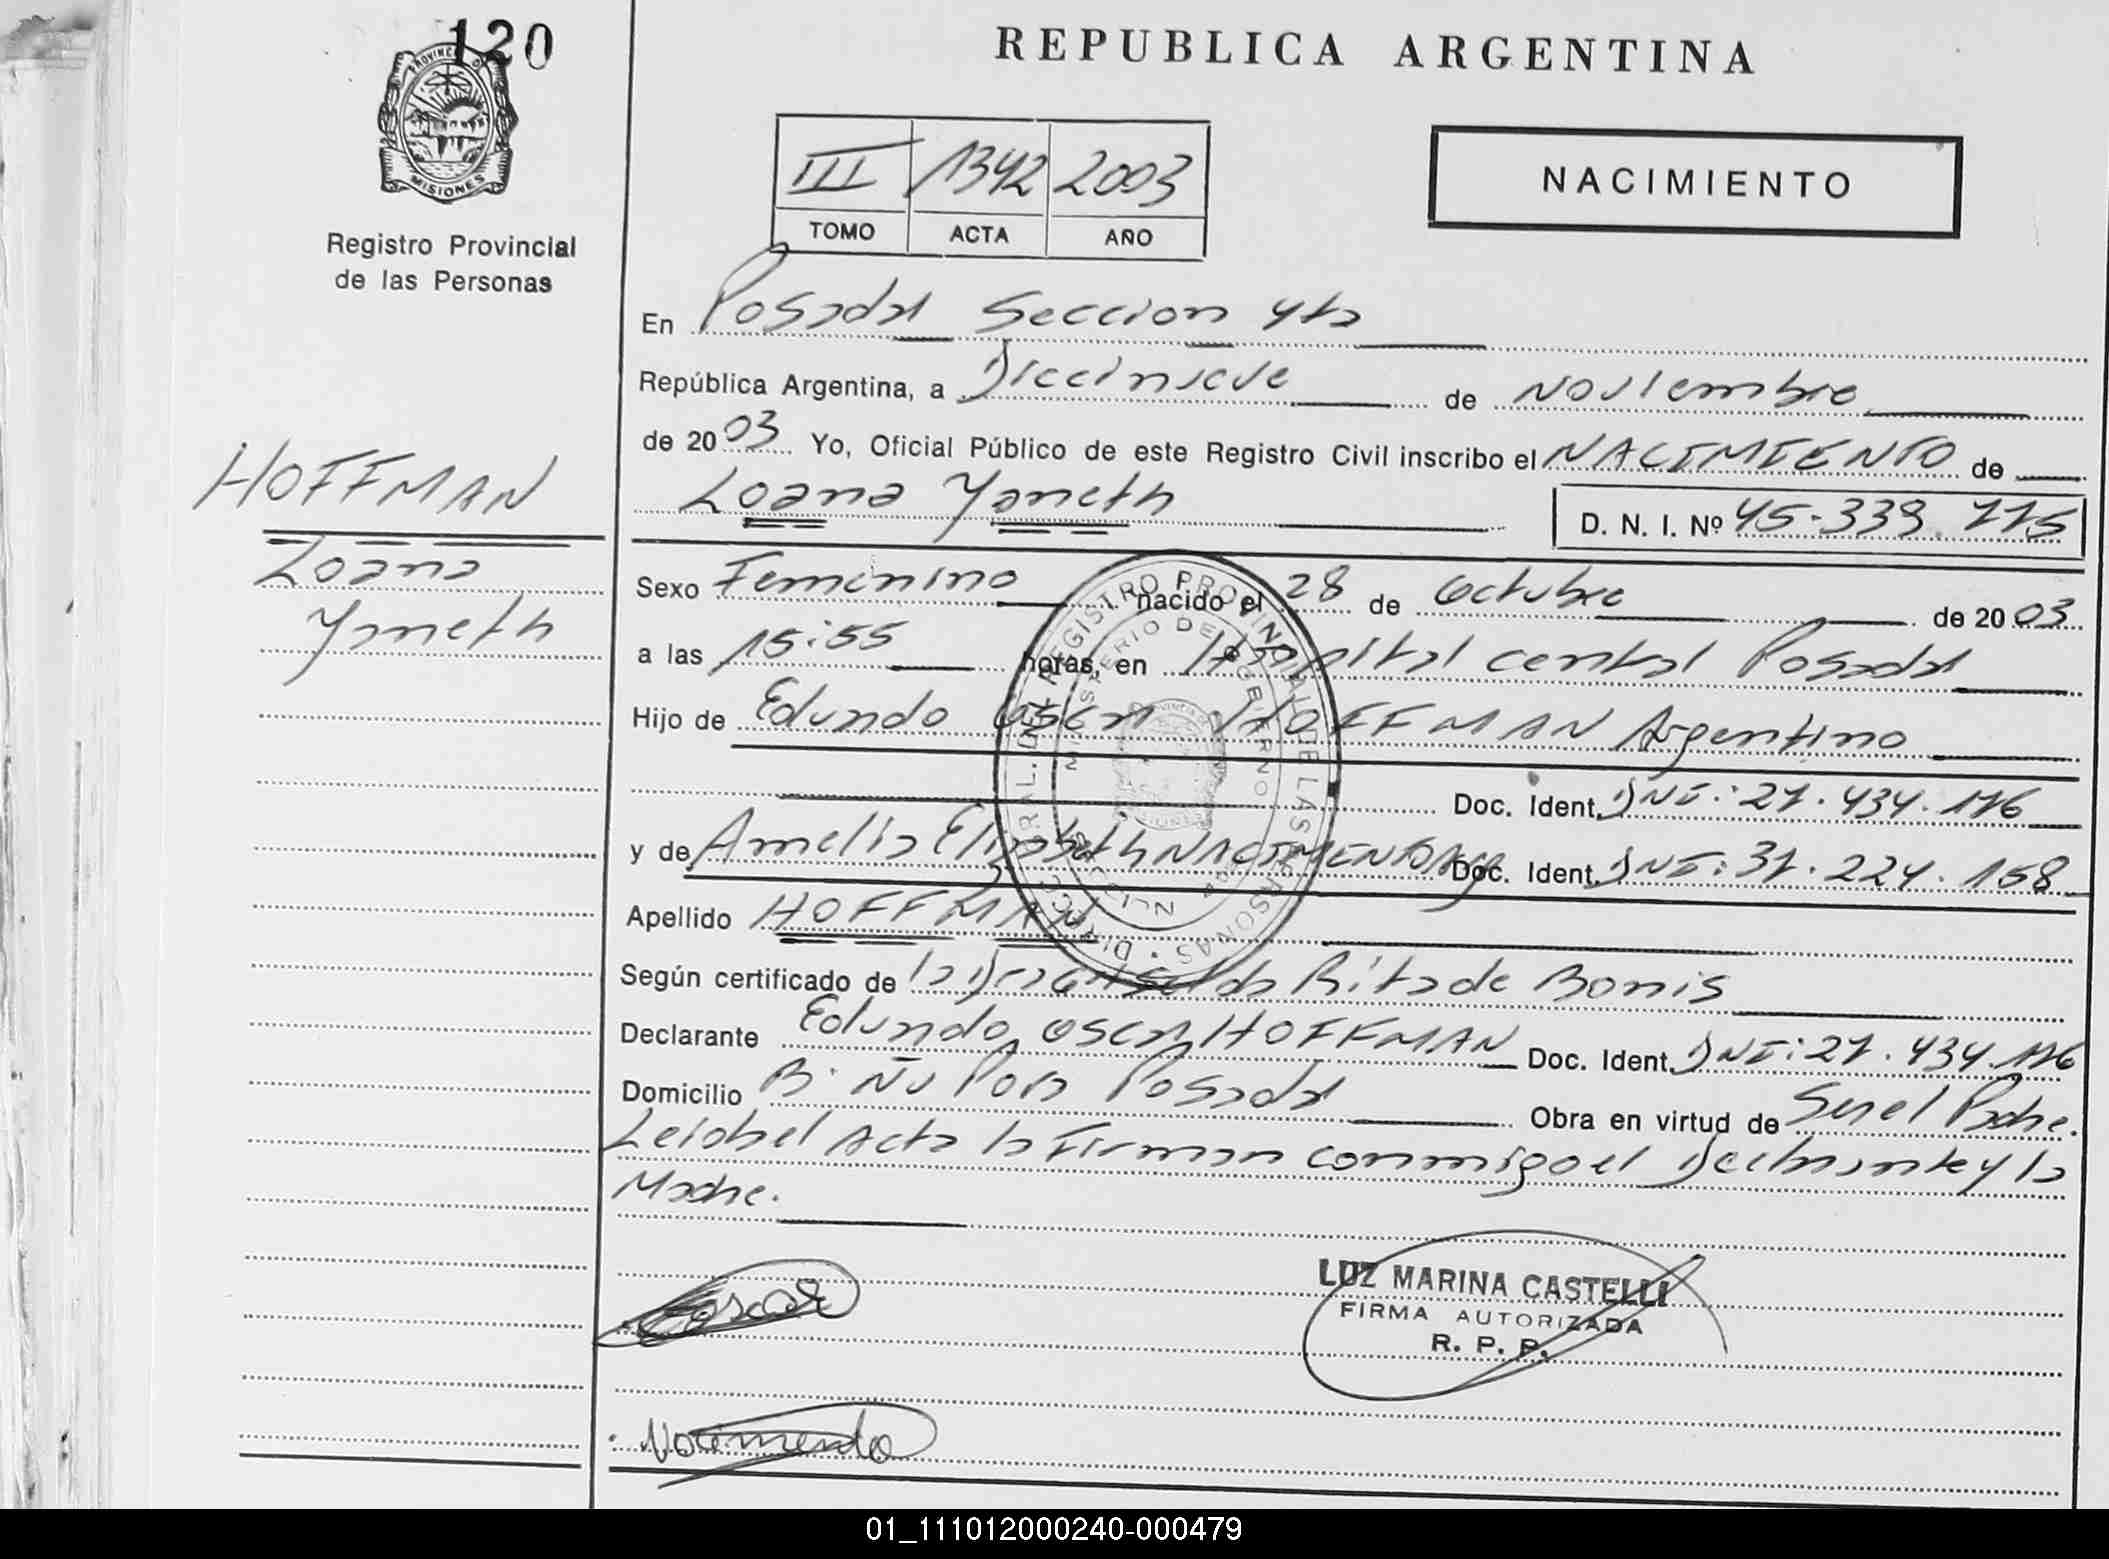 120
PROVINCIA DE
MISIONES
Registro Provincial
de las Personas
REPUBLICA ARGENTINA
III 1342 2003
TOMO ACTA AÑO
NACIMIENTO
En Posadas Seccion 4ta
República Argentina, a Diecinueve de Noviembre
de 2003 Yo, Oficial Público de este Registro Civil inscribo el NACIMIENTO de
Loana Yaneth D. N. I. Nº 45.339.775
HOFFMAN
Loana
Yaneth
Sexo Femenino nacido el 28 de Octubre de 2003
a las 15:55 horas, en Hospital central Posadas
Hijo de Edundo Oscar HOFFMAN Argentino
Doc. Ident. DNI: 27.434.176
y de Amelia Elizabeth NACIMENTO Arg. Doc. Ident. DNI: 31.224.158
Apellido HOFFMAN
Según certificado de la Dra Griselda Rita de Bonis
Declarante Edundo Oscar HOFFMAN Doc. Ident. DNI: 27.434.176
Domicilio B. Ñu Pora Posadas Obra en virtud de Ser el Padre.
Leida el Acta la Firman conmigo el Declarante y la
Madre.
Oscar
LUZ MARINA CASTELLI
FIRMA AUTORIZADA
R. P. P.
Nacimento
01_111012000240-000479